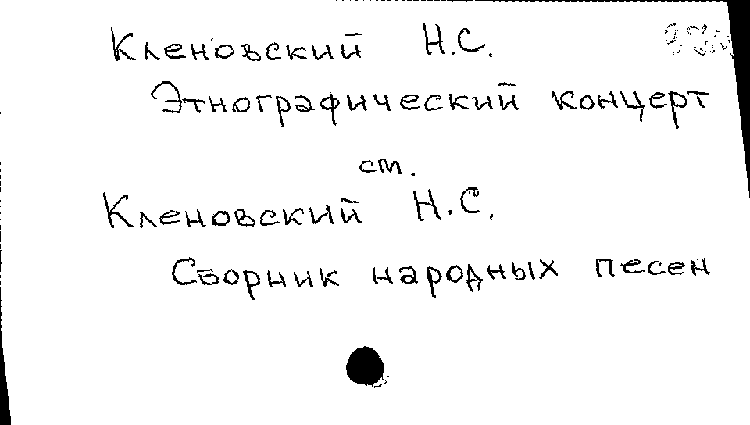 Кленовский Н.С.
Этнографический концерт
см.
Кленовский Н.С.
Сборник народных песен